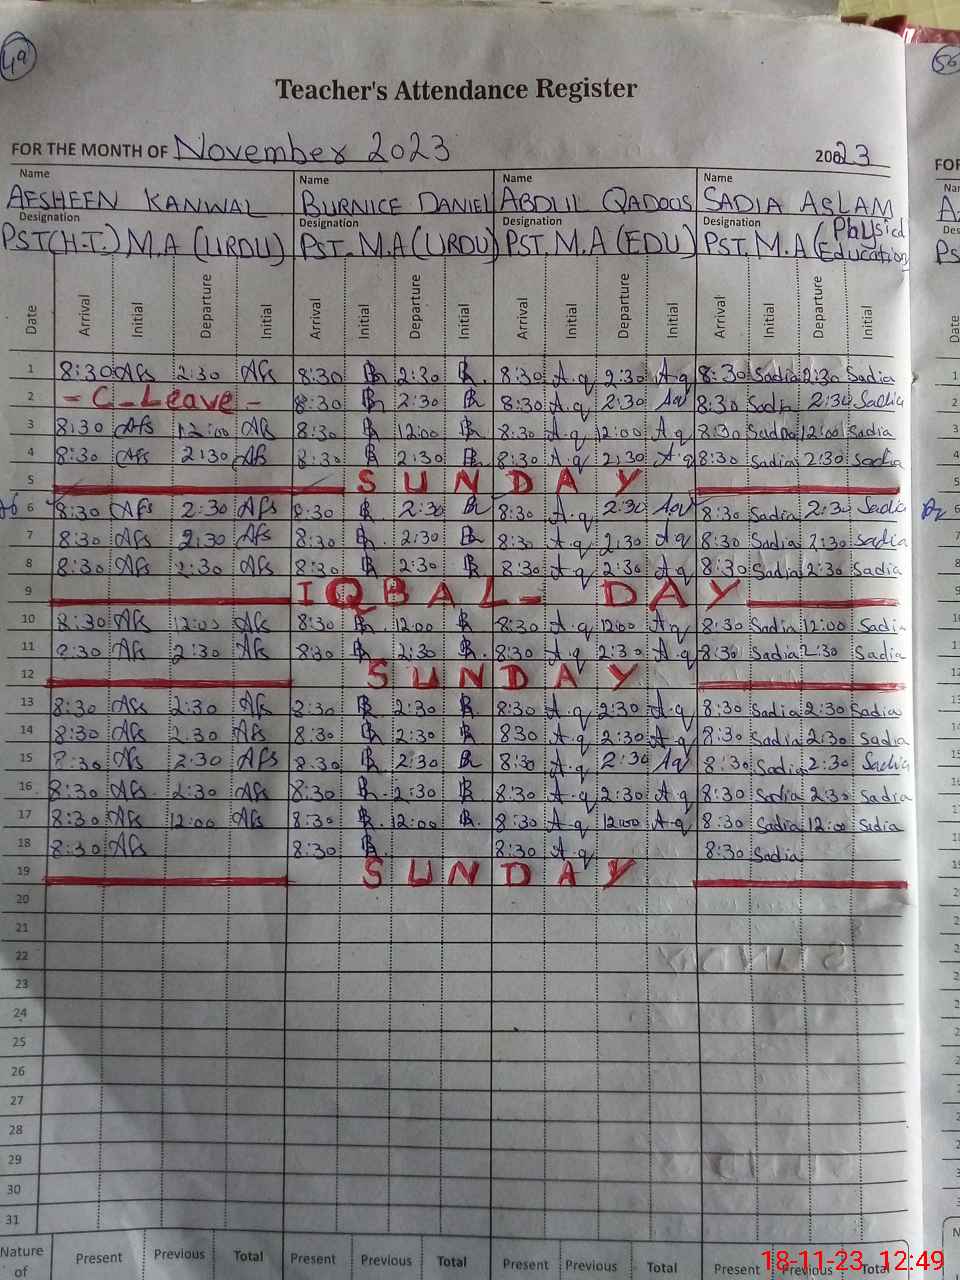 49
50
Teacher's Attendance Register
FOR THE MONTH OF November 2023 20023
FOR
Name Name Name Name
AFSHEEN KANWAL BURNICE DANIEL ABDUL QADOOS SADIA ASLAM
Designation Designation Designation Designation
PST(H.T.) M.A (URDU) PST. M.A (URDU) PST. M.A (EDU) PST. M.A (Physical Education)
Date Arrival Initial Departure Initial Arrival Initial Departure Initial Arrival Initial Departure Initial Arrival Initial Departure Initial
1 8:30 Afs 2:30 Afs 8:30 2:30 8:30 A.q 2:30 A.q 8:30 Sadia 2:30 Sadia
2 - C-Leave - 8:30 2:30 8:30 A.q 2:30 Aq 8:30 Sadia 2:30 Sadia
3 8:30 Afs 12:00 Afs 8:30 12:00 8:30 A.q 12:00 A.q 8:30 Sadia 12:00 Sadia
4 8:30 Afs 2:30 Afs 8:30 2:30 8:30 A.q 2:30 A.q 8:30 Sadia 2:30 Sadia
5 SUNDAY
6 8:30 Afs 2:30 Afs 8:30 2:30 8:30 A.q 2:30 Aq 8:30 Sadia 2:30 Sadia
7 8:30 Afs 2:30 Afs 8:30 2:30 8:30 A.q 2:30 Aq 8:30 Sadia 2:30 Sadia
8 8:30 Afs 2:30 Afs 8:30 2:30 8:30 A.q 2:30 A.q 8:30 Sadia 2:30 Sadia
9 IQBAL- DAY
10 8:30 Afs 12:00 Afs 8:30 12:00 8:30 A.q 12:00 A.q 8:30 Sadia 12:00 Sadia
11 8:30 Afs 2:30 Afs 8:30 2:30 8:30 A.q 2:30 A.q 8:30 Sadia 2:30 Sadia
12 SUNDAY
13 8:30 Afs 2:30 Afs 8:30 2:30 8:30 A.q 2:30 A.q 8:30 Sadia 2:30 Sadia
14 8:30 Afs 2:30 Afs 8:30 2:30 830 A.q 2:30 A.q 8:30 Sadia 2:30 Sadia
15 8:30 Afs 2:30 Afs 8:30 2:30 8:30 A.q 2:30 Aq 8:30 Sadia 2:30 Sadia
16 8:30 Afs 2:30 Afs 8:30 2:30 8:30 A.q 2:30 A.q 8:30 Sadia 2:30 Sadia
17 8:30 Afs 12:00 Afs 8:30 12:00 8:30 A.q 12:00 A.q 8:30 Sadia 12:00 Sadia
18 8:30 Afs 8:30 8:30 A.q 8:30 Sadia
19 SUNDAY
20
21
22
23
24
25
26
27
28
29
30
31
Nature of Present Previous Total Present Previous Total Present Previous Total Present Previous Total
18-11-23, 12:49